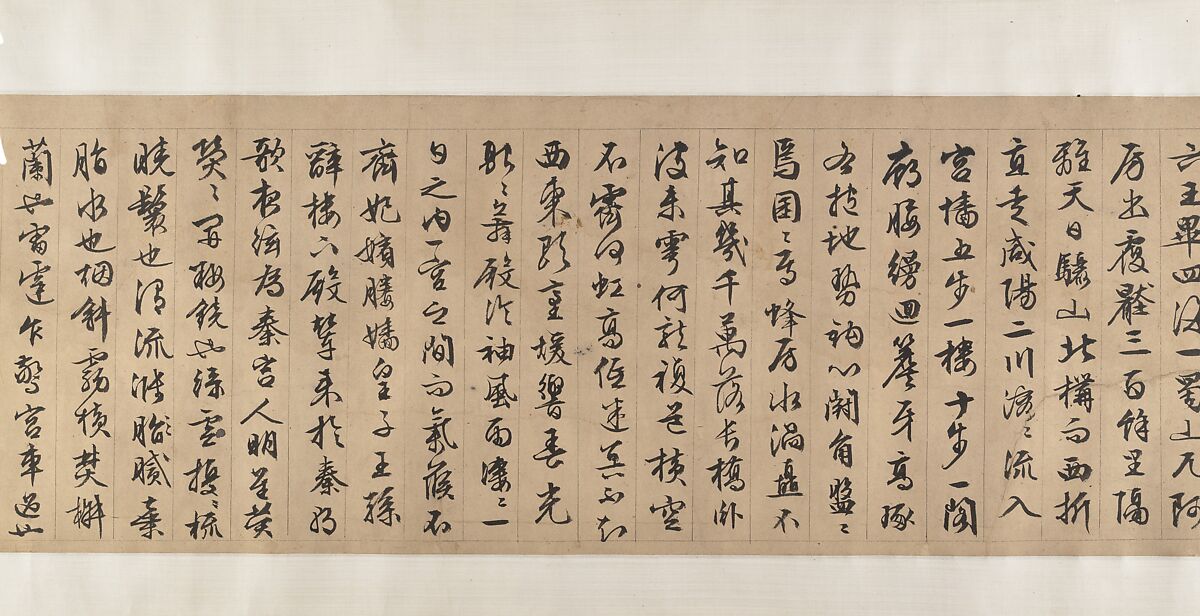 六王畢四海一蜀山兀阿
房出覆壓三百餘里隔
離天日驪山北構而西折
直走咸陽二川溶〻流入
宮墻五步一樓十步一閣
廊腰縵迴簷牙高啄
各抱地勢鉤心鬭角盤〻
焉囷〻焉蜂房水渦矗不
知其幾千萬落長橋臥
波未雩何龍複道橫空
不霽何虹高低迷冥不知
西東歌臺煖響春光
融〻舞殿冷袖風雨淒〻一
日之內一宮之間而氣候不
齊妃嬪媵嬙皇子王孫
辭樓下殿輦來於秦朝
歌夜絃為秦宮人明星熒
熒〻開粧鏡也綠雲擾〻梳
曉鬟也渭流漲脂膩棄
脂水也烟斜霧橫焚椒
蘭也雷霆乍驚宮車過也